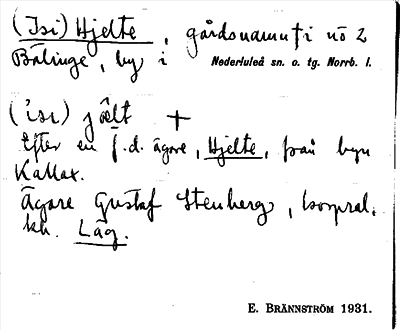 (Isi) Hjelte, gårdsnamn i nö 2
Bälinge, by i Nederluleå sn. o. tg. Norrb. l.
('isi) jält +
Efter en f.d. ägare, Hjelte, från byn
Kallax.
Ägare Gustaf Stenberg, korpral.
kh. Låg.
E. BRÄNNSTRÖM 1931.